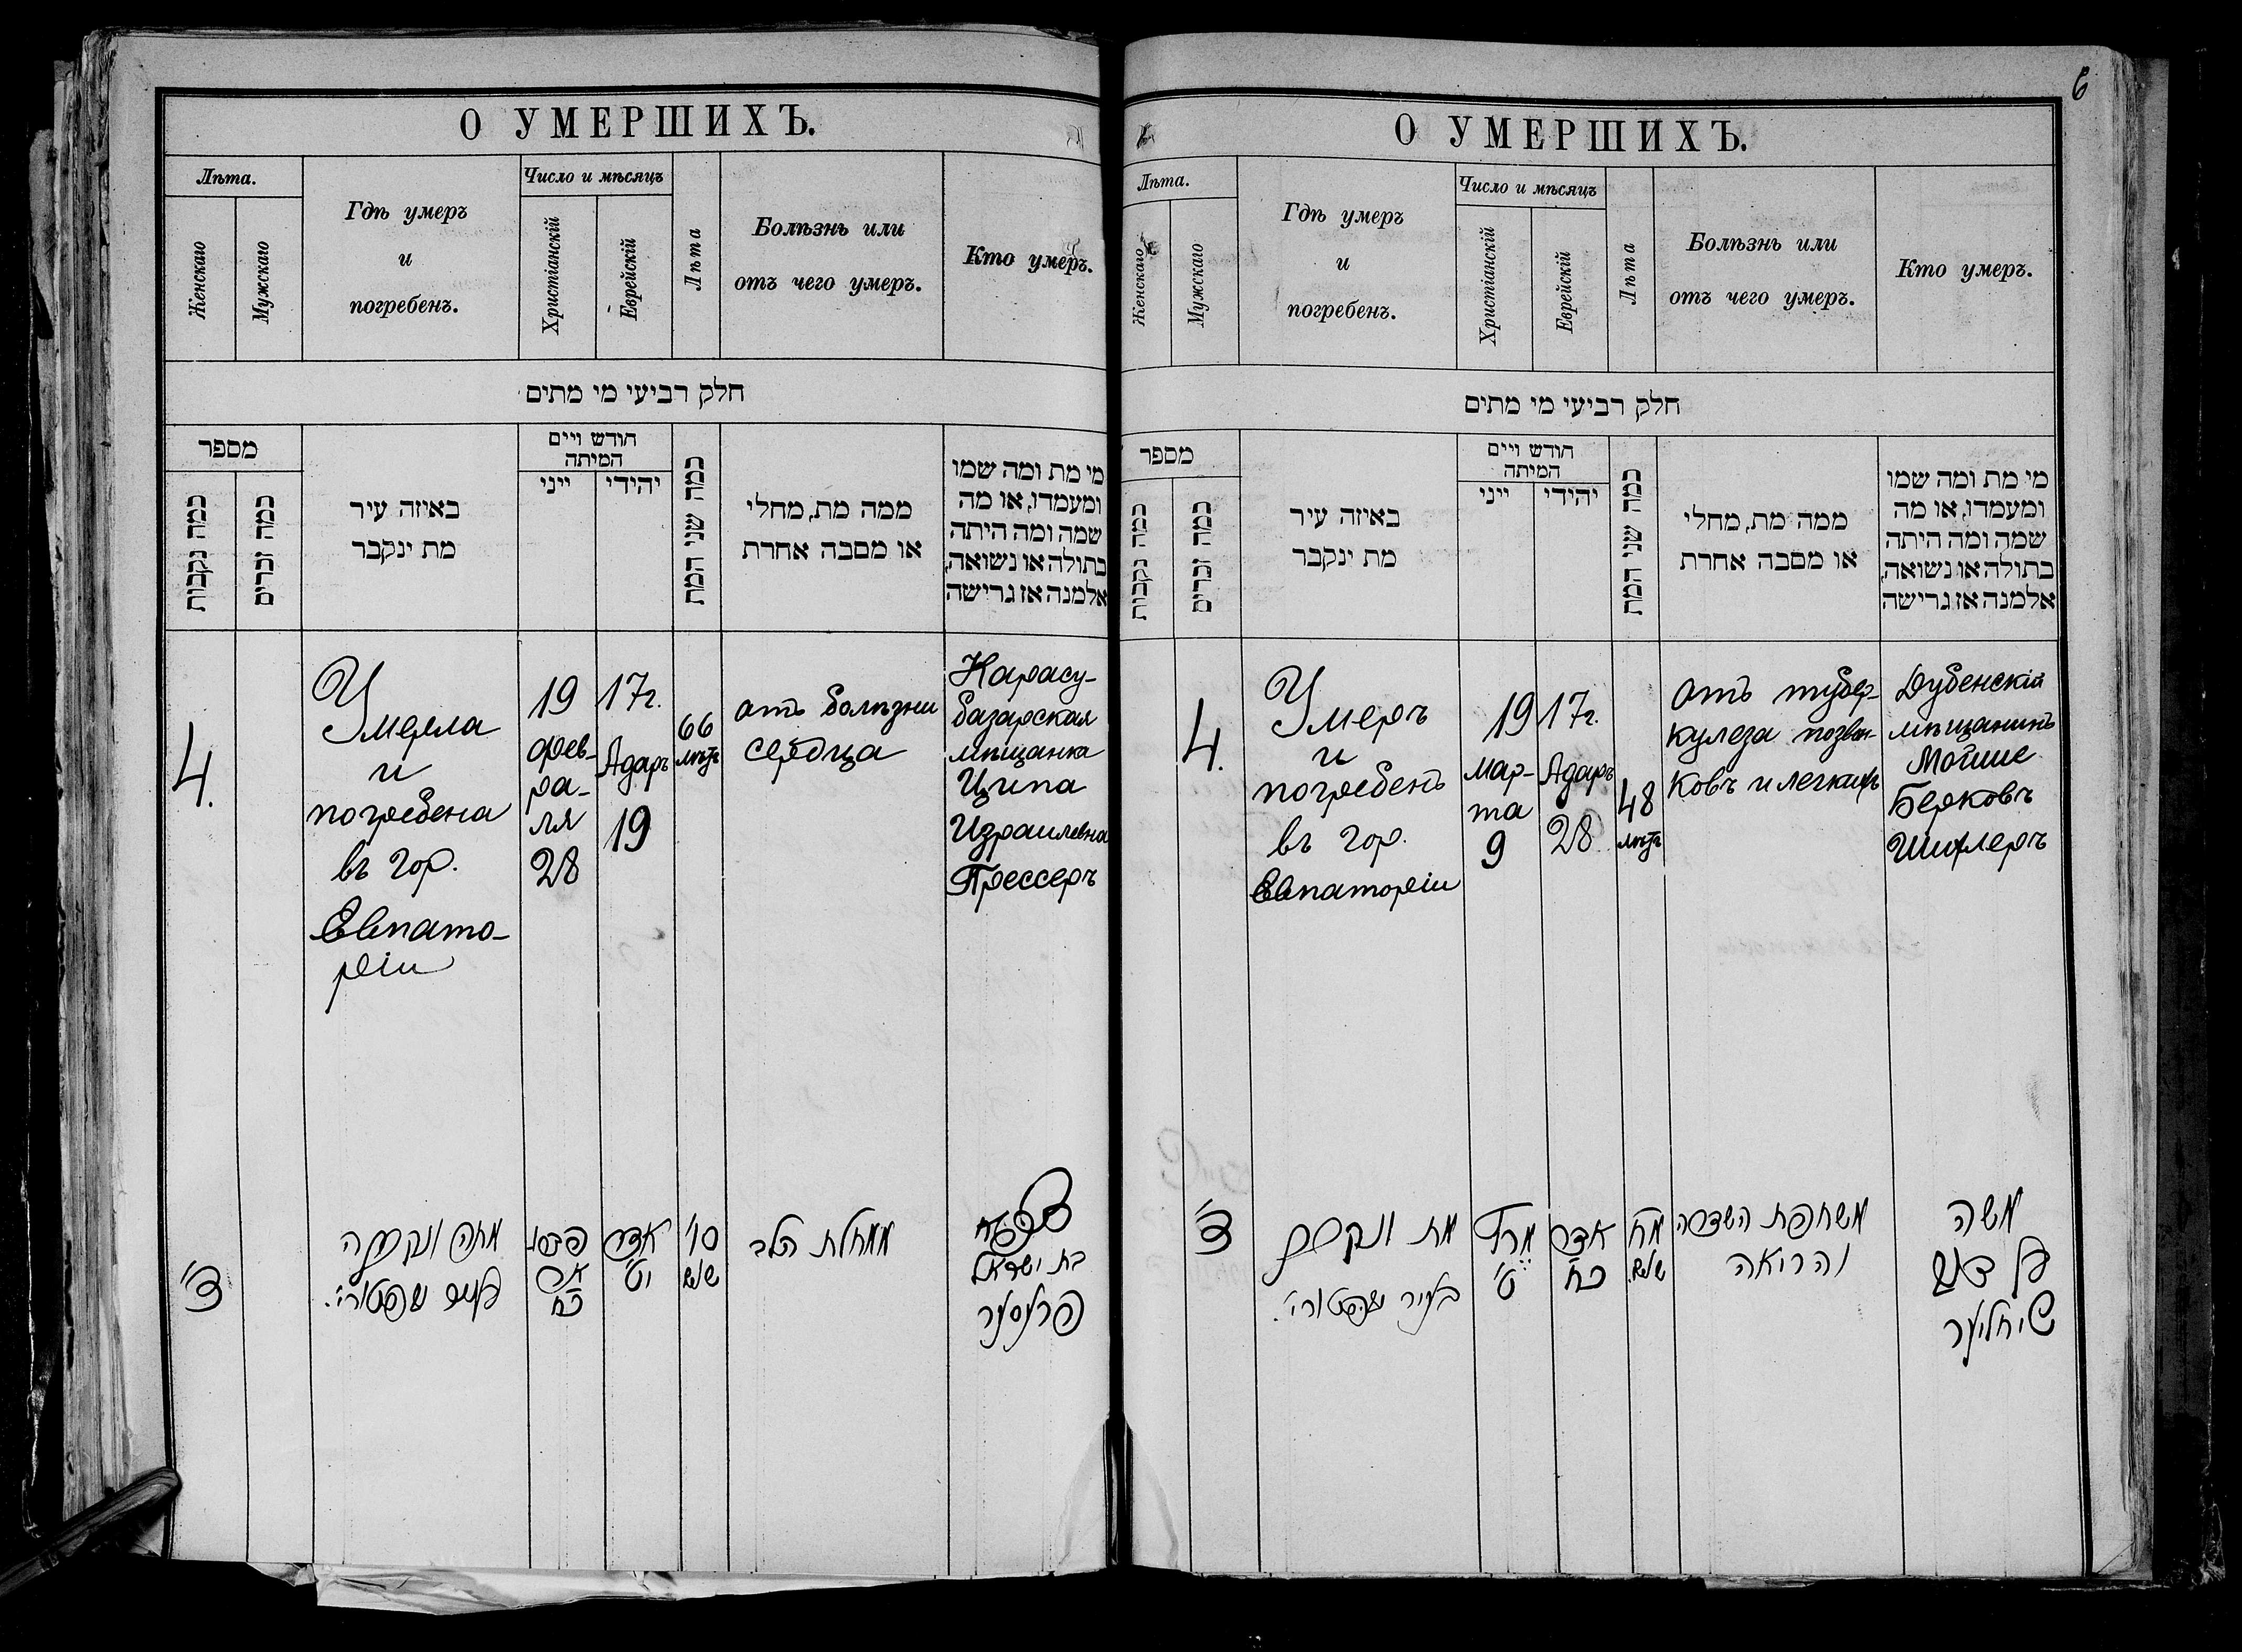 О УМЕРШИХЪ.
Лѣта.
Женскаго
Мужскаго
Гдѣ умеръ
и
погребенъ.
Число и мѣсяцъ
Христіанскій
Еврейскій
Лѣта
Болѣзнь или
отъ чего умеръ.
Кто умеръ.
חלק רביעי מי מתים
מספר
כמה נקבות
כמה זכרים
באיזה עיר
מת ינקבר
חודש ויים
המיתה
ייני
יהידי
כמה שני המת
ממה מת, מחלי
או מסבה אחרת
מי מת ומה שמו
ומעמדו, או מה
שמה ומה היתה
בתולה או נשואה,
אלמנה אז גרישה
4.
Умерла
и
погребена
въ гор.
Евпато-
ріи
19
фев-
ра-
ля
28
17г.
Адаръ
19
66
лѣтъ
отъ болѣзни
сердца
Карасу-
базарская
мѣщанка
Ципа
Израилевна
Прессеръ
ד'
מתה ונקברה
אדר
י"ט
ס"ו
שנים
ממחלת הלב
בת ישראל
פרעסער
6
О УМЕРШИХЪ.
Лѣта.
Женскаго
Мужскаго
Гдѣ умеръ
и
погребенъ.
Число и мѣсяцъ
Христіанскій
Еврейскій
Лѣта
Болѣзнь или
отъ чего умеръ.
Кто умеръ.
חלק רביעי מי מתים
מספר
כמה נקבות
כמה זכרים
באיזה עיר
מת ינקבר
חודש ויים
המיתה
ייני
יהידי
כמה שני המת
ממה מת, מחלי
או מסבה אחרת
מי מת ומה שמו
ומעמדו, או מה
שמה ומה היתה
בתולה או נשואה,
אלמנה אז גרישה
4.
Умеръ
и
погребенъ
въ гор.
Евпаторіи
19
мар-
та
9
17г.
Адаръ
28
48
лѣтъ
отъ тубер-
кулеза позвон-
ковъ и легкихъ
Дубенскій
мѣщанинъ
Мойше
Берковъ
Шихлеръ
ד'
מת ונקבר
בעיר
מרץ
ט'
אדר
כח
מח
שנים
משחפת השדרה
והריאה
משה
שיחלער